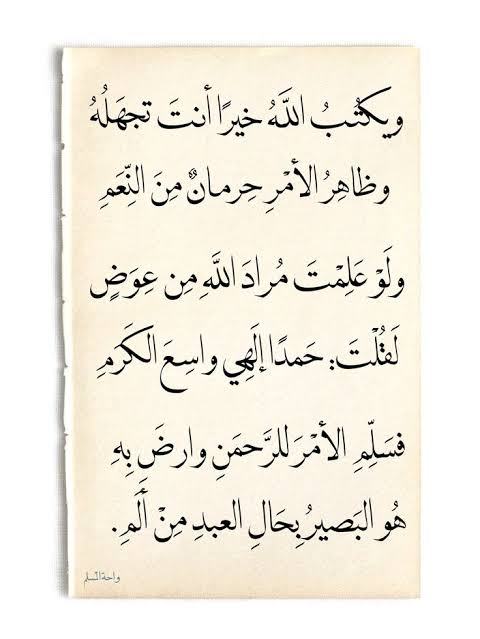 ويكتُبُ اللَّهُ خيرًا أنتَ تجهَلُهُ
وظاهِرُ الأمْرِ حِرمانٌ مِنَ النِّعَمِ
ولَوْ عَلِمْتَ مُرادَ اللَّهِ مِن عِوَضٍ
لَقُلْتَ: حَمدًا إلَهِي واسِعَ الكَرَمِ
فسَلِّمِ الأمْرَ للرَّحمَنِ وارضَ بِهِ
هُو البَصيرُ بِحَالِ العبدِ مِنْ ألَمِ.
واحة المسلم